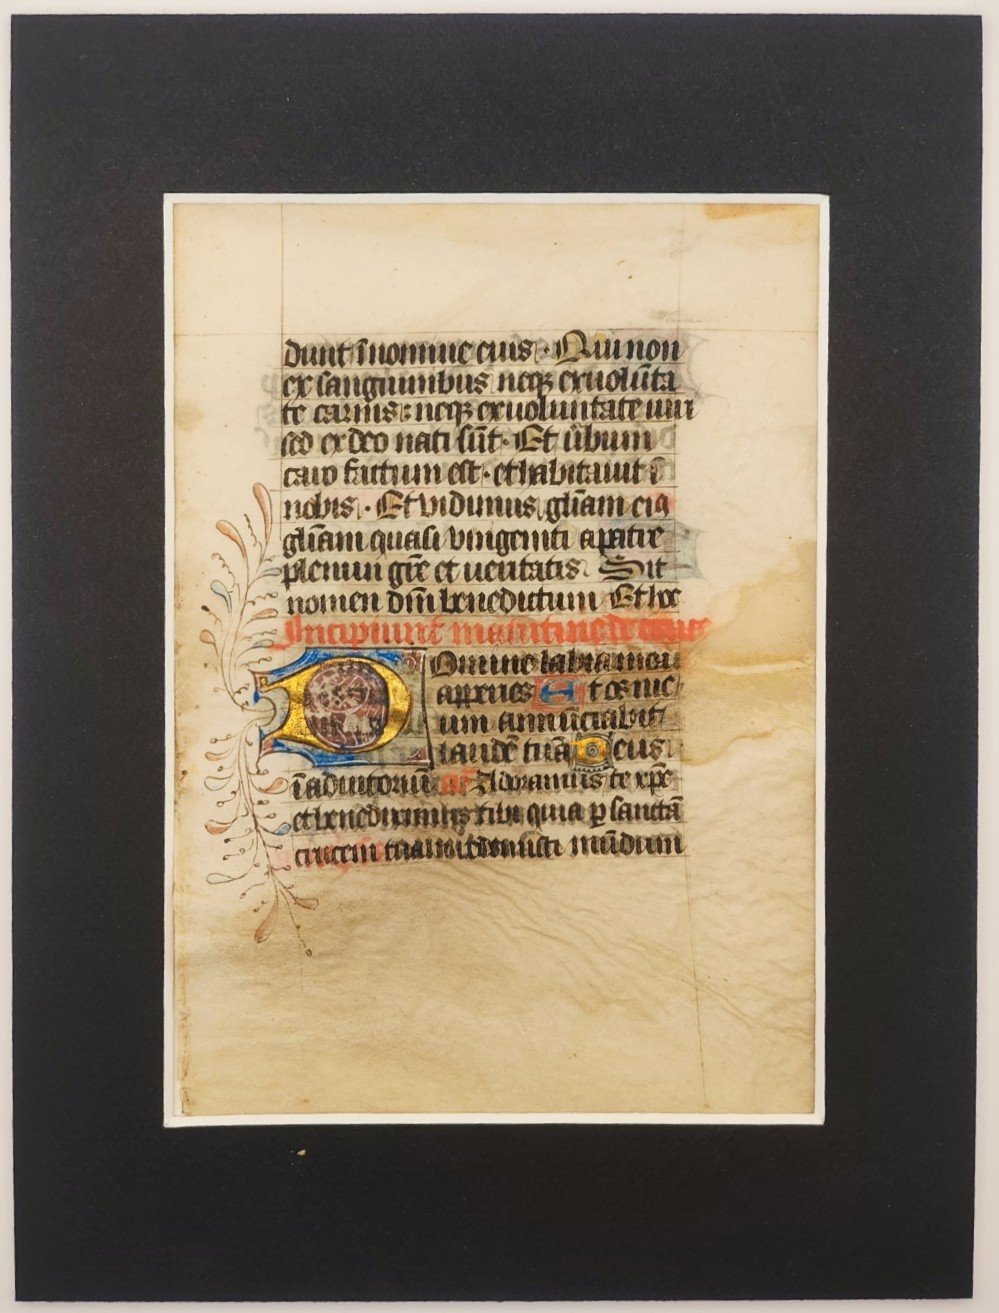 dunt ī nomine eius · Qui non
ex sanguinibus neqꝫ ex uolūta
te carnis : neqꝫ ex uoluntate uiri
sed ex deo nati sūt · Et ūbum
caro factum est · et habitauit ī
nobis · Et vidimus gl̄iam eiꝰ
gl̄iam quasi vnigeniti a patre
plenum gr̄e et ueritatis Sit
nomen dn̄i benedictum Et hoc
Incipiunt matutine de cruce
Domine labia mea
aperies Et os me
um annūciabit
laudē tuā Deus
ī adiutoriū Adoramus te xp̄e
et benedicimus tibi quia ꝑ sanctā
crucem tuam redemisti mūdum